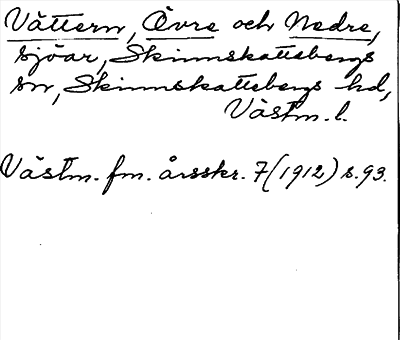 Vättern, Övre och Nedre,
sjöar, Skinnskattebergs
sn, Skinnskattebergs hd,
Västm. l.
Västm. fm. årsskr. 7 (1912) s. 93.